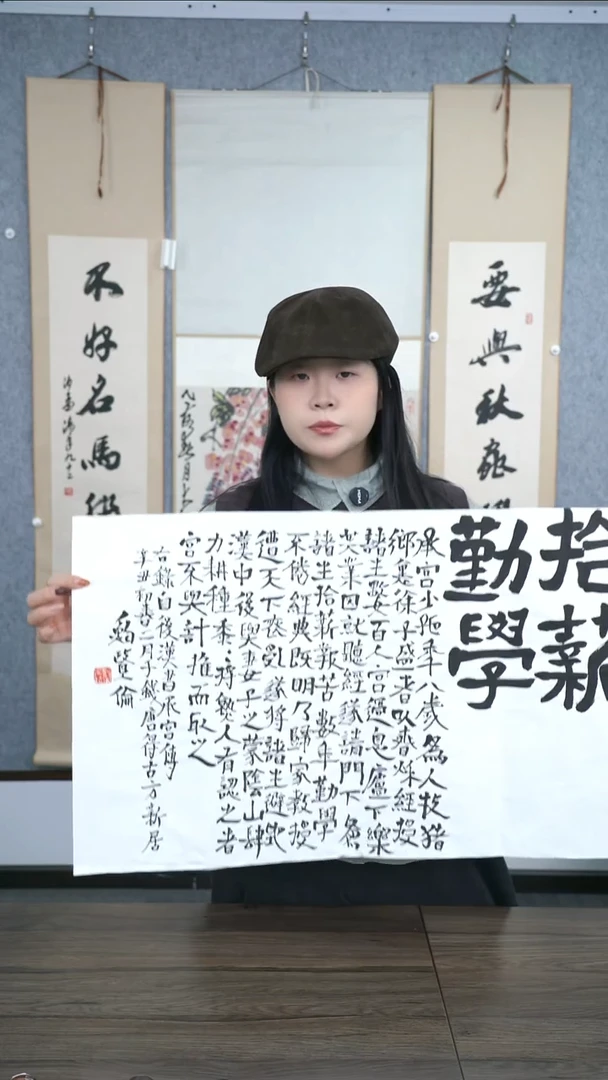 要與秋
拾薪
勤學
承宮少孤年八歲為人牧猪
鄉里徐子盛者以春秋經授
諸生數百人宮過息廬下樂
其業因就聽經遂請門下為
諸生拾薪執苦數年勤學
不倦經典既明乃歸家教授
遭天下喪亂遂將諸生避地
漢中後與妻子之蒙陰山肆
力耕種禾將熟人有認之者
宮不與計推而取之
右錄自後漢書承宮傳
辛丑初春二月于錢唐得古方新居
不好名馬